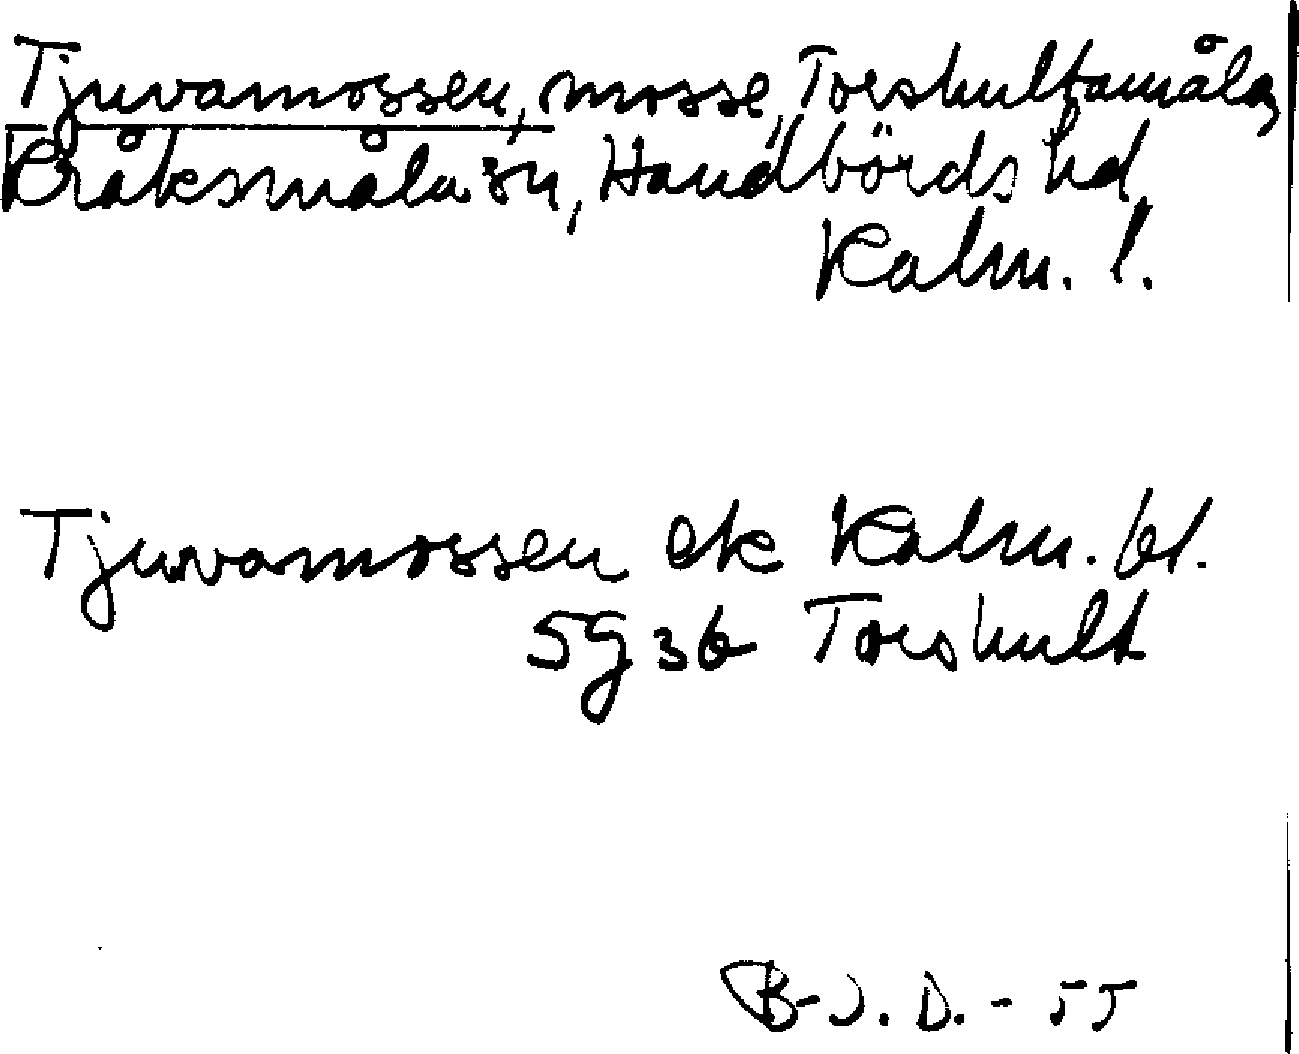 Tjuvamossen, mosse, Toreshultamåla,
Kråksmåla sn, Handbörds hd,
Kalm. l.
Tjuvamossen ek Kalm. bl.
5g 36 Toreshult
B-J. D. - 55